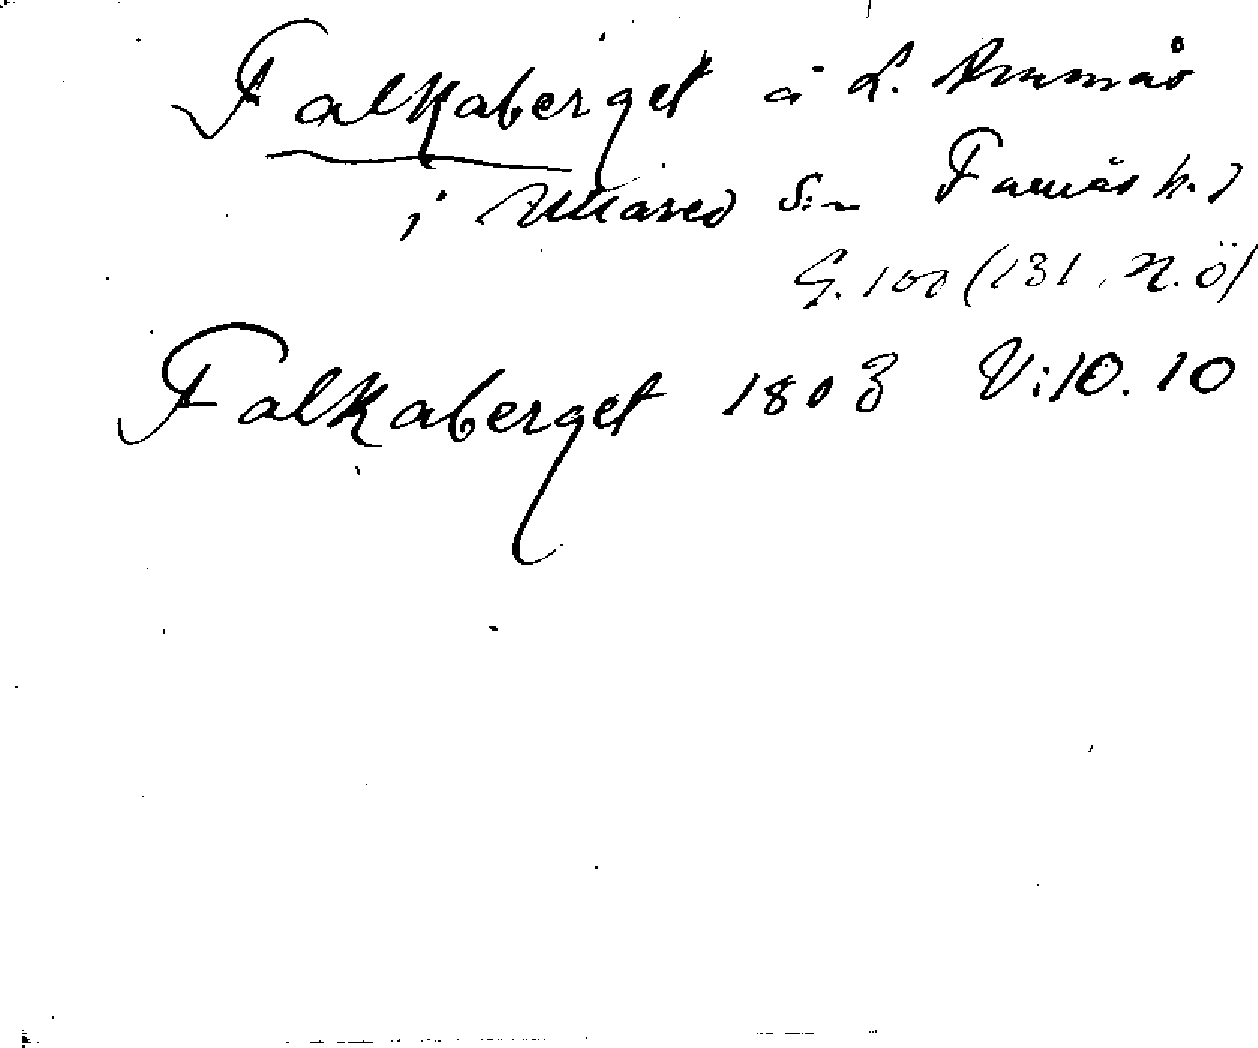 Falkaberget å L.
i Ullared S:n Farnäs h. 7
G. 100 (131. N. Ö)
Falkaberget 1803 V:10. 10